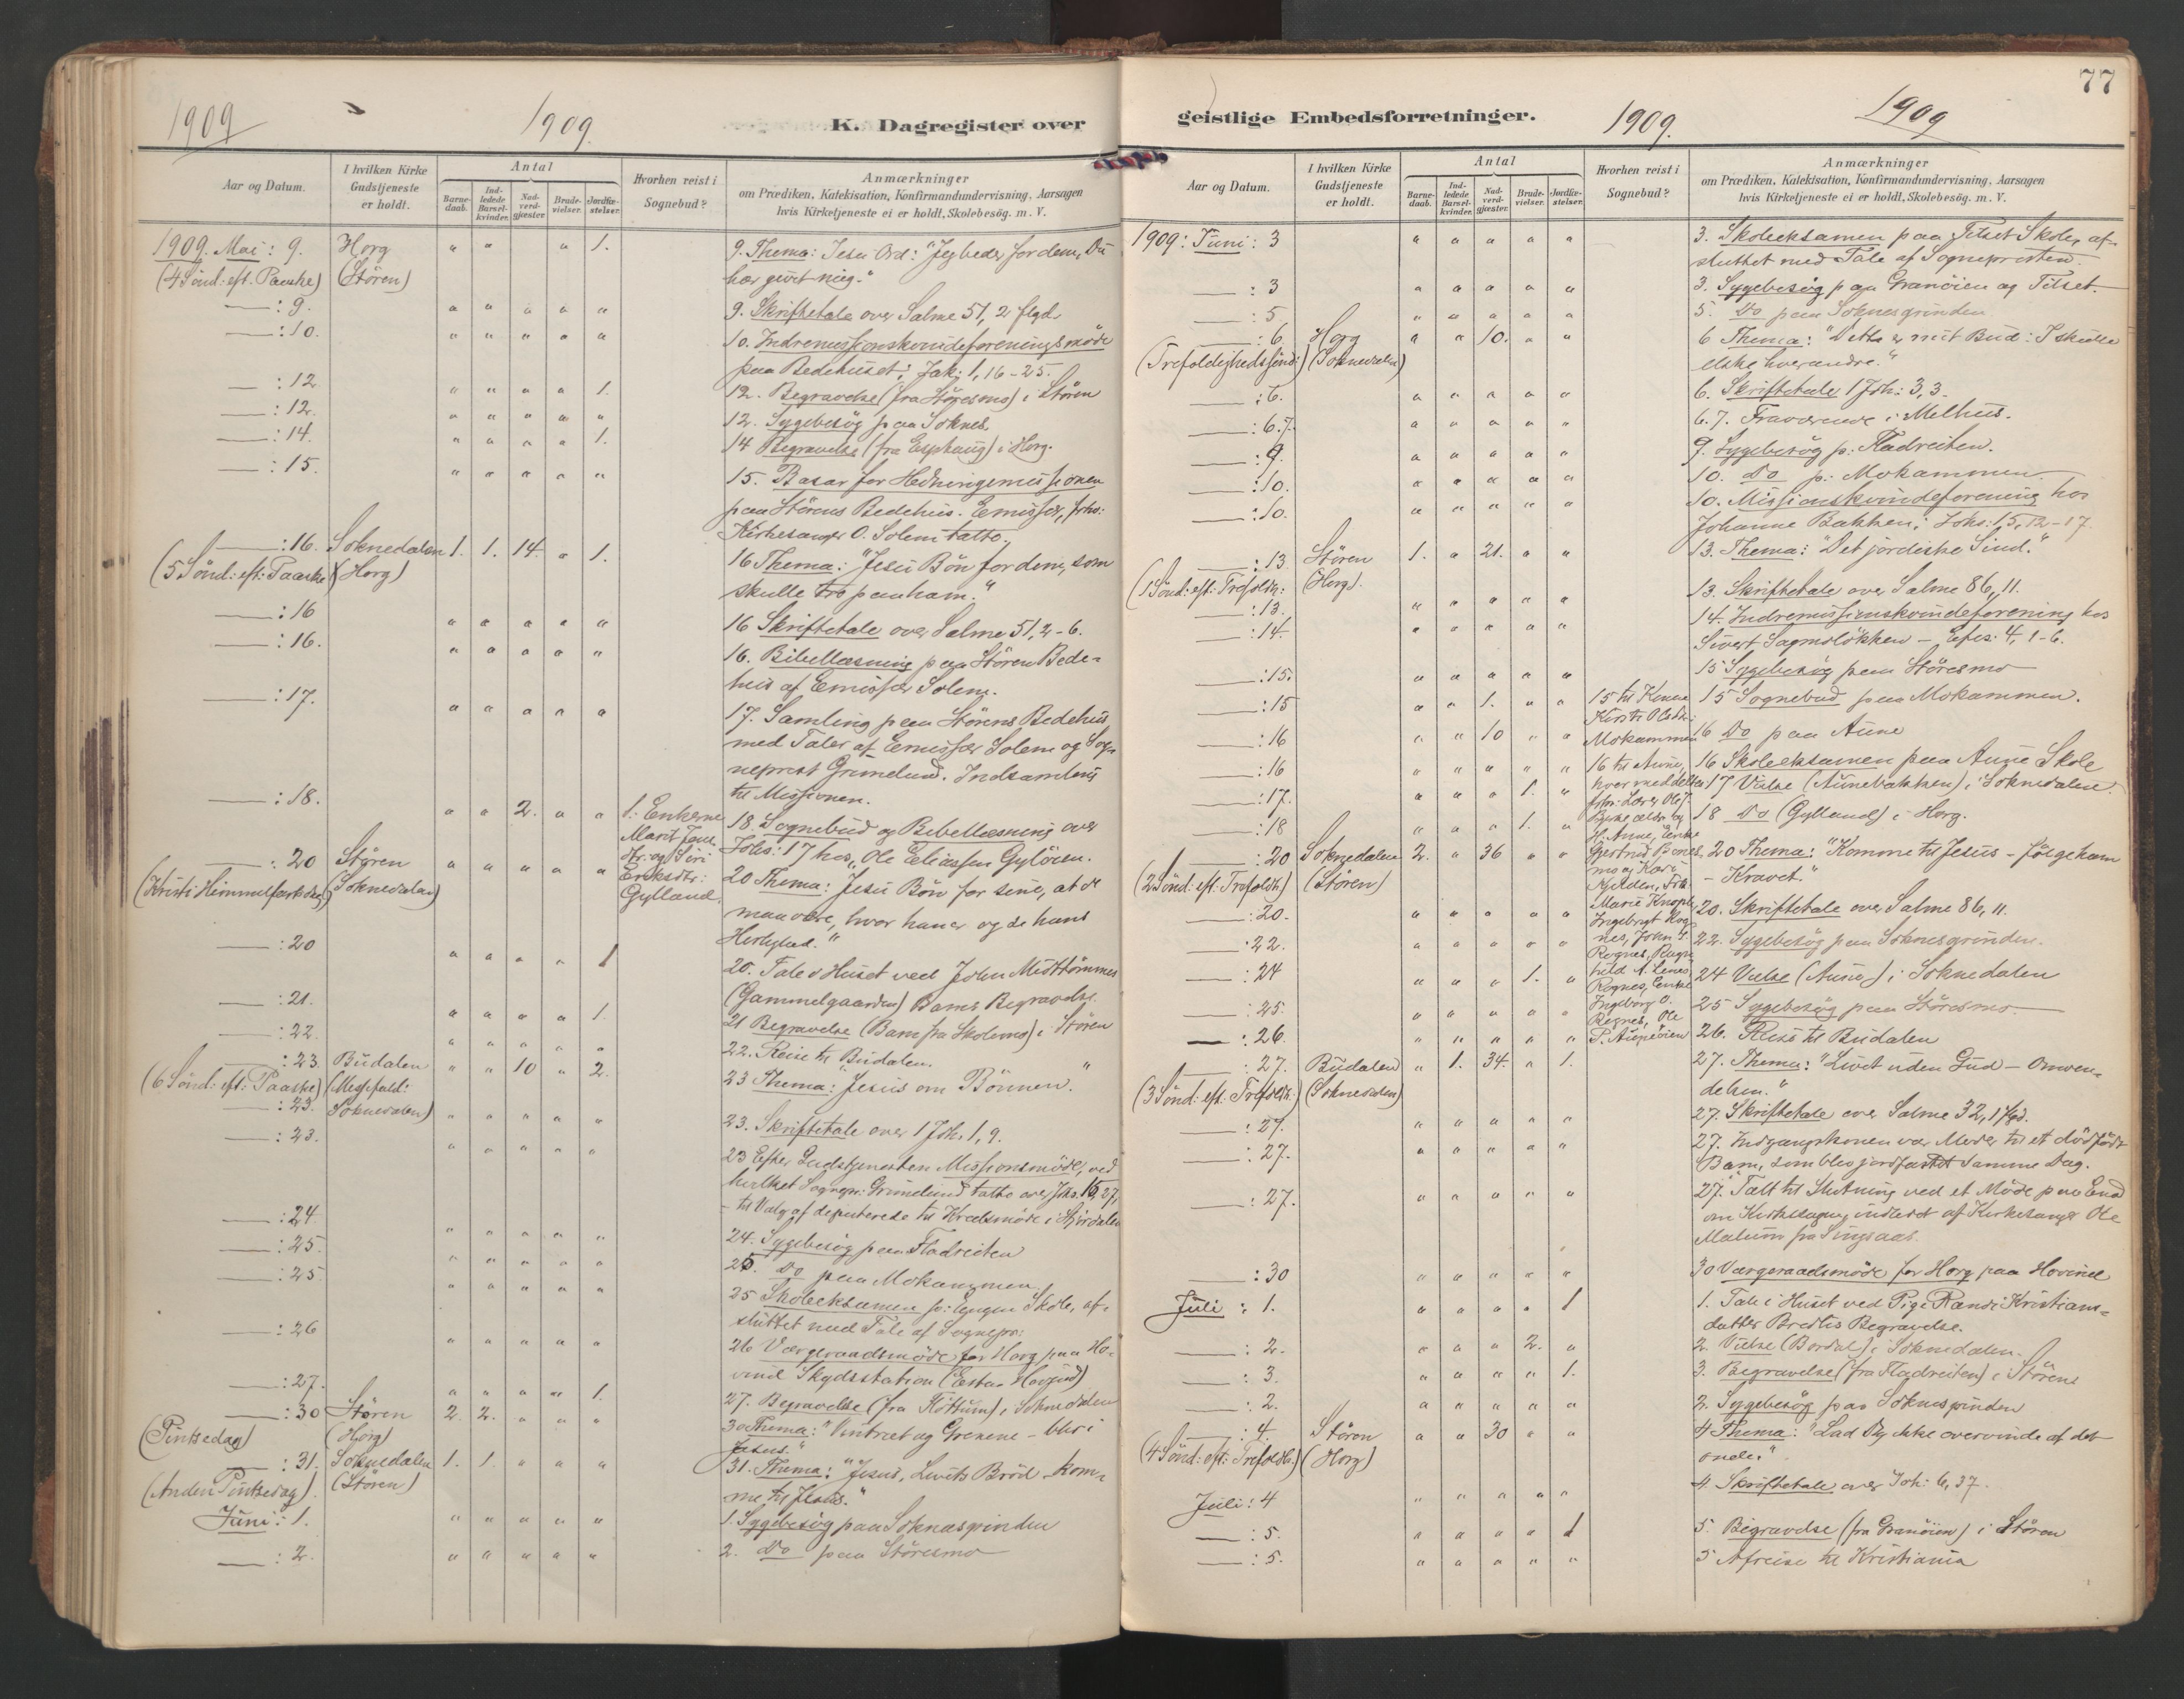 1909
1909.
K. Dagregister over
Aar og Datum.
I hvilken Kirke Gudstjeneste er holdt.
Antal
Barne-daab.
Ind-ledede Barsel-kvinder.
Nad-verd-gjæster.
Brude-vielser.
Jordfæ-stelser.
Hvorhen reist i Sognebud?
Anmærkninger
om Prædiken, Katekisation, Konfirmandundervisning, Aarsagen
hvis Kirketjeneste ei er holdt, Skolebesög. m. V.
1909. Mai: 9. Horg " " " 1. 9. Thema: Jesu Ord: "Jeg beder for dem, Du
(4 Sönd: eft. Paaske) (Stören) har givet mig."
: 9. " " " " " 9. Skriftetale over Salme 51, 2 flgd.
: 10. " " " " " 10. Indremissionskvindeforeningsmöde
paa Bedehuset; Jak: 1, 16-25.
: 12 " " " " 1. 12. Begravelse (fra Störesmo) i Stören
: 12. " " " " " 12. Sygebesög paa Soknes.
: 14. " " " " 1. 14 Begravelse (fra Esphaug) i Horg.
: 15. " " " " " 15. Basar for Hedningemissionen
paa Störens Bedehus. Emissær, fhv:
Kirkesanger O. Solem talte.
: 16. Soknedalen 1. 1. 14. " 1. 16 Thema: "Jesu Bön for dem, som
(5 Sönd: eft: Paaske) (Horg) skulle tro paa ham."
: 16 " " " " " 16 Skriftetale over Salme 51, 2-6.
: 16. " " " " " 16. Bibellæsning paa Stören Bede=
hus af Emissær Solem.
: 17. " " " " " 17. Samling paa Störens Bedehus
med Taler af Emissær Solem og Sog-
neprest Grimelund. Indsamling
til Missionen.
: 18. " " 2. " " 1: Enkerne 18. Sognebud og Bibellæsning over
Marit Jens Johs: 17 hos, Ole Eliassen Gylöien.
dtr. og Siri
Eriksdtr:
Gylland.
: 20 Stören " " " " " 20 Thema: Jesu Bön for sine, at de
(Kristi Himmelfartsdag) (Soknedalen) maa være, hvor han er og se hans
Herlighed."
: 20 " " " " 1 20. Tale i Huset ved John Midttömmes
(Gammelgaarden) Barns Begravelse.
: 21. " " " " 1. 21 Begravelse (Barn fra Skolemo) i Stören
: 22. " " " " " 22. Reise til Budalen.
: 23. Budalen " " 10 " 2. 23 Thema: "Jesus om Bönnen."
(6 Sönd: eft: Paaske) (Messefald:
: 23. Soknedalen) " " " " " 23. Skriftetale over 1 Joh. 1, 9.
: 23. " " " " " 23 Efter Gudstjenesten Missionsmöde, ved
hvilket Sognepr: Grimelund talte over Joh. 15, 27,
- til Valg af deputerede til Kredsmöde i Stjördalen
: 24 " " " " " 24. Sygebesög paa Fladreiten
: 25. " " " " " 25. Do paa Mokammen.
: 25 " " " " " 25 Skoleeksamen p: Engen Skole, af-
sluttet med Tale af Sognepr:
: 26 " " " " " 26 Værgeraadsmöde for Horg paa Ho-
vind Skydsstation (Estar Hovind)
: 27. " " " " 1. 27. Begravelse (fra Flöttum) i Soknedalen
: 30 Stören 2. 2. " " " 30 Thema: "Vintræet og Grenene - bliv i
(Pintsedag) (Horg) Jesus."
: 31. Soknedalen 1. 1. " " " 31. Thema: "Jesus, Livets Bröd - kom=
(Anden Pintsedag). (Stören) me til Jesus."
Juni: 1. " " " " " 1. Sygebesög paa Soknesgrinden
: 2. " " " " " 2. Do paa Störesmo
77
geistlige Embedsforretninger.
1909.
1909
Aar og Datum.
I hvilken Kirke Gudstjeneste er holdt.
Antal
Barne-daab.
Ind-ledede Barsel-kvinder.
Nad-verd-gjæster.
Brude-vielser.
Jordfæ-stelser.
Hvorhen reist i Sognebud?
Anmærkninger
om Prædiken, Katekisation, Konfirmandundervisning, Aarsagen
hvis Kirketjeneste ei er holdt, Skolebesög. m. V.
1909: Juni: 3 " " " " " 3. Skoleeksamen paa Tilset Skole, af-
sluttet med Tale af Sognepresten.
: 3 " " " " " 3. Sygebesög paa Granöien og Tilset.
: 5. " " " " " 5. Do paa Soknesgrinden
: 6. Horg " " 10. " " 6 Thema: "Dette er mit Bud: I skulle
(Trefoldighedssönd:) (Soknedalen) elske hverandre."
: 6. " " " " " 6. Skriftetale 1 Joh: 3, 3.
: 6.7. " " " " " 6.7. Fraværende i Melhus.
: 9. " " " " " 9. Sygebesög p: Fladreiten.
: 10. " " " " " 10. Do p: Mokammen
: 10. " " " " " 10. Missionskvindeforening hos
Johanne Bakken; Johs: 15, 12-17.
: 13 Stören 1. " 21. " " 13. Thema: "Det jordiske Sind."
(1 Sönd: eft: Trefoldh:) (Horg).
: 13. " " " " " 13. Skriftetale over Salme 86, 11.
: 14. " " " " " 14. Indremissionskvindeforening hos
Sivert Sagmolökken - Efes: 4, 1-6.
: 15. " " " " " 15 Sygebesög paa Störesmo
: 15 " " 1. " " 15 til Kone 15 Sognebud paa Mokammen.
Kirsti Olsdtr:
: 16 " " 10 " " Mokammen 16 Do paa Aune
: 16 " " " " " 16 til Aune, 16 Skoleeksamen paa Aune Skole
: 17. " " " 1. " hvor meddeltes 17 Vielse (Aunebakken) i Soknedalen.
: 18 " " " 1. " 18 Do (Gylland) i Horg.
H. Aune, Enke
: 20 Soknedalen 2. " 36 " " Gjertrud 20 Thema: "Komme til Jesus - fölge ham
(2 Sönd: eft: Trefoldh:) (Stören) mo og Kari - Kravet."
: 20. " " " " " Marie 20. Skriftetale over Salme 86, 11.
Ingebrigt Rog
: 22. " " " " " nes, John 22. Sygebesög paa Soknesgrinden.
: 24 " " " 1. " 24 Vielse (Aune) i Soknedalen
Rognes, Enke
: 25. " " " " " Ingeborg O. 25 Sygebesög paa Störesmo.
Rognes, Ole
: 26. " " " " " 26. Reise til Budalen
: 27. Budalen " 1. 34. " 1. 27. Thema: "Livet uden Gud - Omven-
(3 Sönd: eft: Trefoldh.) (Soknedalen) delsen."
: 27. " " " " " 27. Skriftetale over Salme 32, 1 flgd.
: 27. " " " " " 27. Indgangskonen var Moder til et dödfödt
Barn, som blev jordfæstet samme Dag.
: 27. " " " " " 27. Talt til Slutning ved et Möde paa Enod
om Kirkesagen, indledet af Kirkesanger Ole
Malum fra Singsaas.
: 30 " " " " " 30 Værgeraadsmöde for Horg paa Hovind
Juli : 1. " " " " 1 1. Tale i Huset ved Pige Randi Kristians=
datter Bredlis Begravelse.
: 2. " " " 2. " 2. Vielse (Bordal) i Soknedalen.
: 3. " " " " 1. 3. Begravelse (fra Fladreiten) i Stören
: 2. " " " " " 2. Sygebesög paa Soknesgrinden
: 4. Stören " " 30 " " 4 Thema: "Lad Dig ikke overvinde af det
(4 Sönd: eft: Trefoldh.) (Horg) onde."
Juli: 4 " " " " " 4. Skriftetale over Joh: 6, 37.
: 5. " " " " 1 5. Begravelse (fra Granöien) i Stören
: 5. " " " " " 5 Afreise til Kristiania